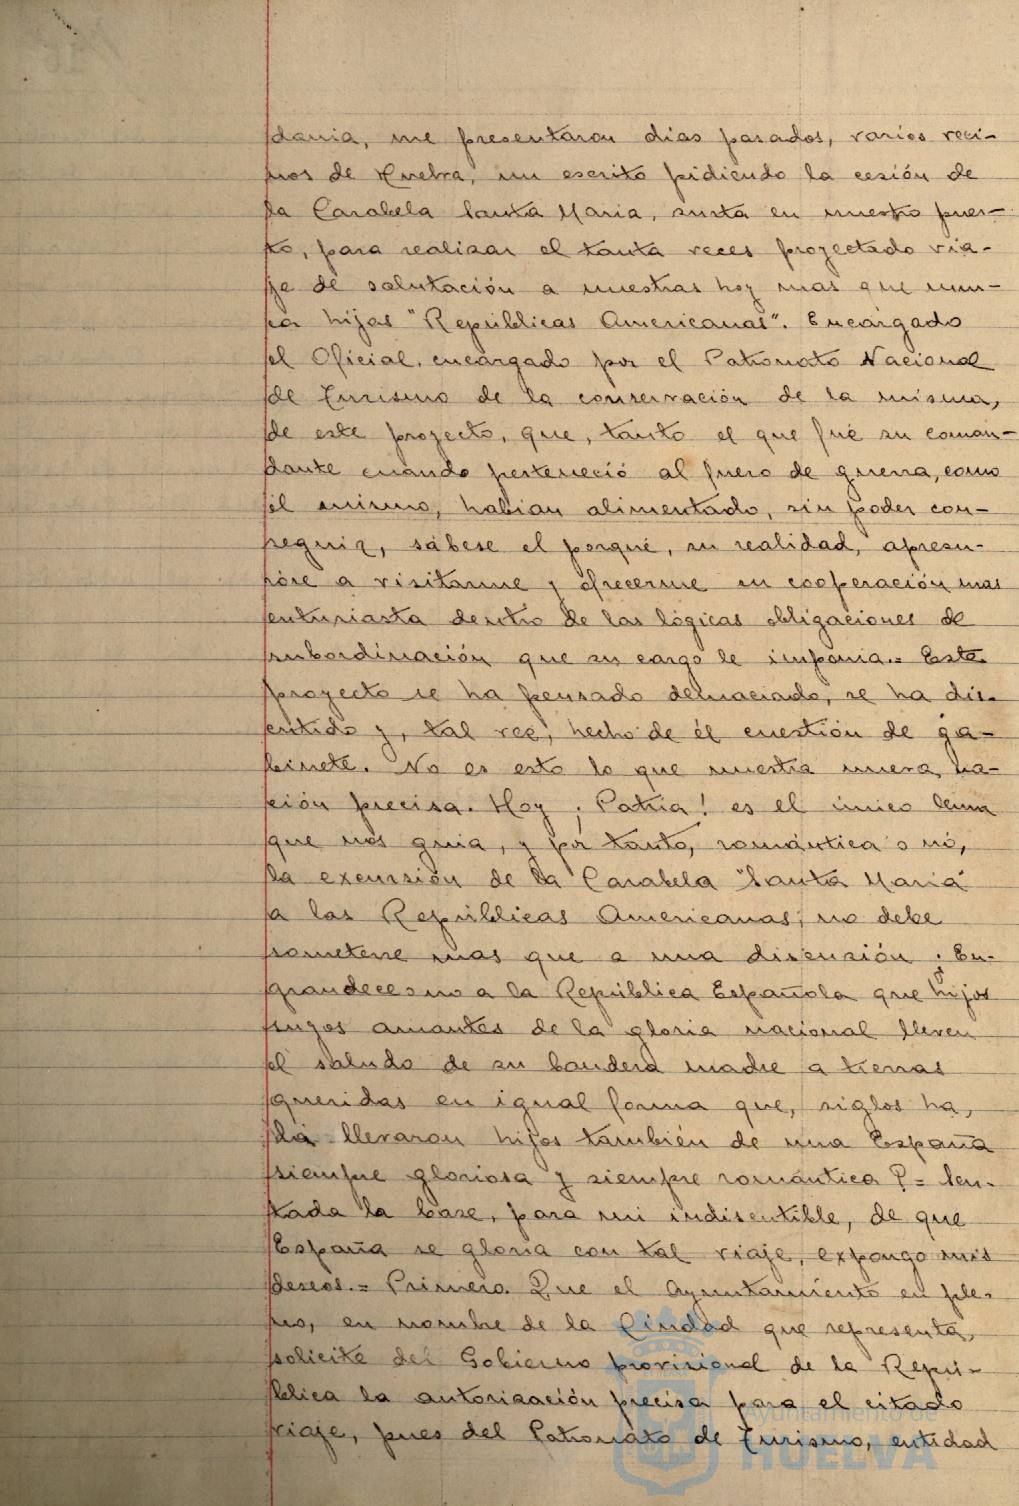 dania, me presentaron días pasados, varios veci-
nos de Huelva, un escrito pidiendo la cesión de
la Carabela Santa Maria, surta en nuestro puer-
to, para realizar el tanta veces proyectado via-
je de salutación a nuestras hoy mas que nun-
ca hijas "Repúblicas Americanas". Encargado
el Oficial, encargado por el Patronato Nacional
de Turismo de la conservación de la misma,
de este proyecto, que, tanto el que fué su coman-
dante cuando perteneció al fuero de guerra, como
él mismo, habian alimentado, sin poder con-
seguir, sábese el porqué, su realidad, apresu-
róse a visitarme y ofrecerme su cooperación mas
entusiasta dentro de las lógicas obligaciones de
subordinación que su cargo le imponia.= Este
proyecto se ha pensado demaciado, se ha dis-
cutido y, tal vez, hecho de él cuestión de ga-
binete. No es esto lo que nuestra nueva na-
ción precisa. Hoy ¡Patria! es el único lema
que nos guia, y por tanto, romántica o nó,
la excursión de la Carabela "Santa Maria"
a las Repúblicas Americanas, no debe
someterse mas que a una discusión ¿En-
grandece o no a la República Española que hijos
suyos amantes de la gloria nacional lleven
el saludo de su bandera madre a tierras
queridas en igual forma que, siglos ha,
la llevaron hijos también de una España
siempre gloriosa y siempre romántica?= Sen-
tada la base, para mi indiscutible, de que
España se gloria con tal viaje, expongo mis
deseos.= Primero. Que el Ayuntamiento en ple-
no, en nombre de la Ciudad que representa,
solicite del Gobierno provisional de la Repú-
blica la autorización precisa para el citado
viaje, pues del Patronato de Turismo, entidad
Ayuntamiento de
HUELVA